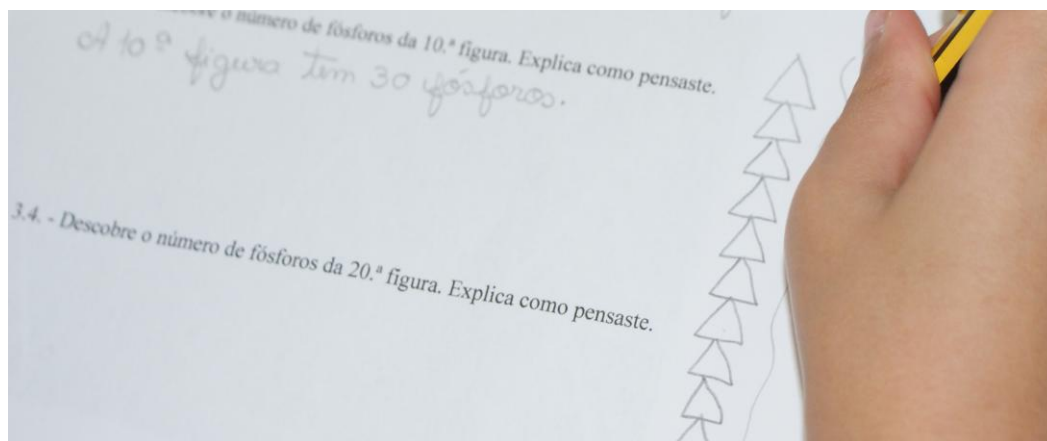 o número de fósforos da 10.ª figura. Explica como pensaste.
A 10ª figura tem 30 fósforos.
3.4. - Descobre o número de fósforos da 20.ª figura. Explica como pensaste.